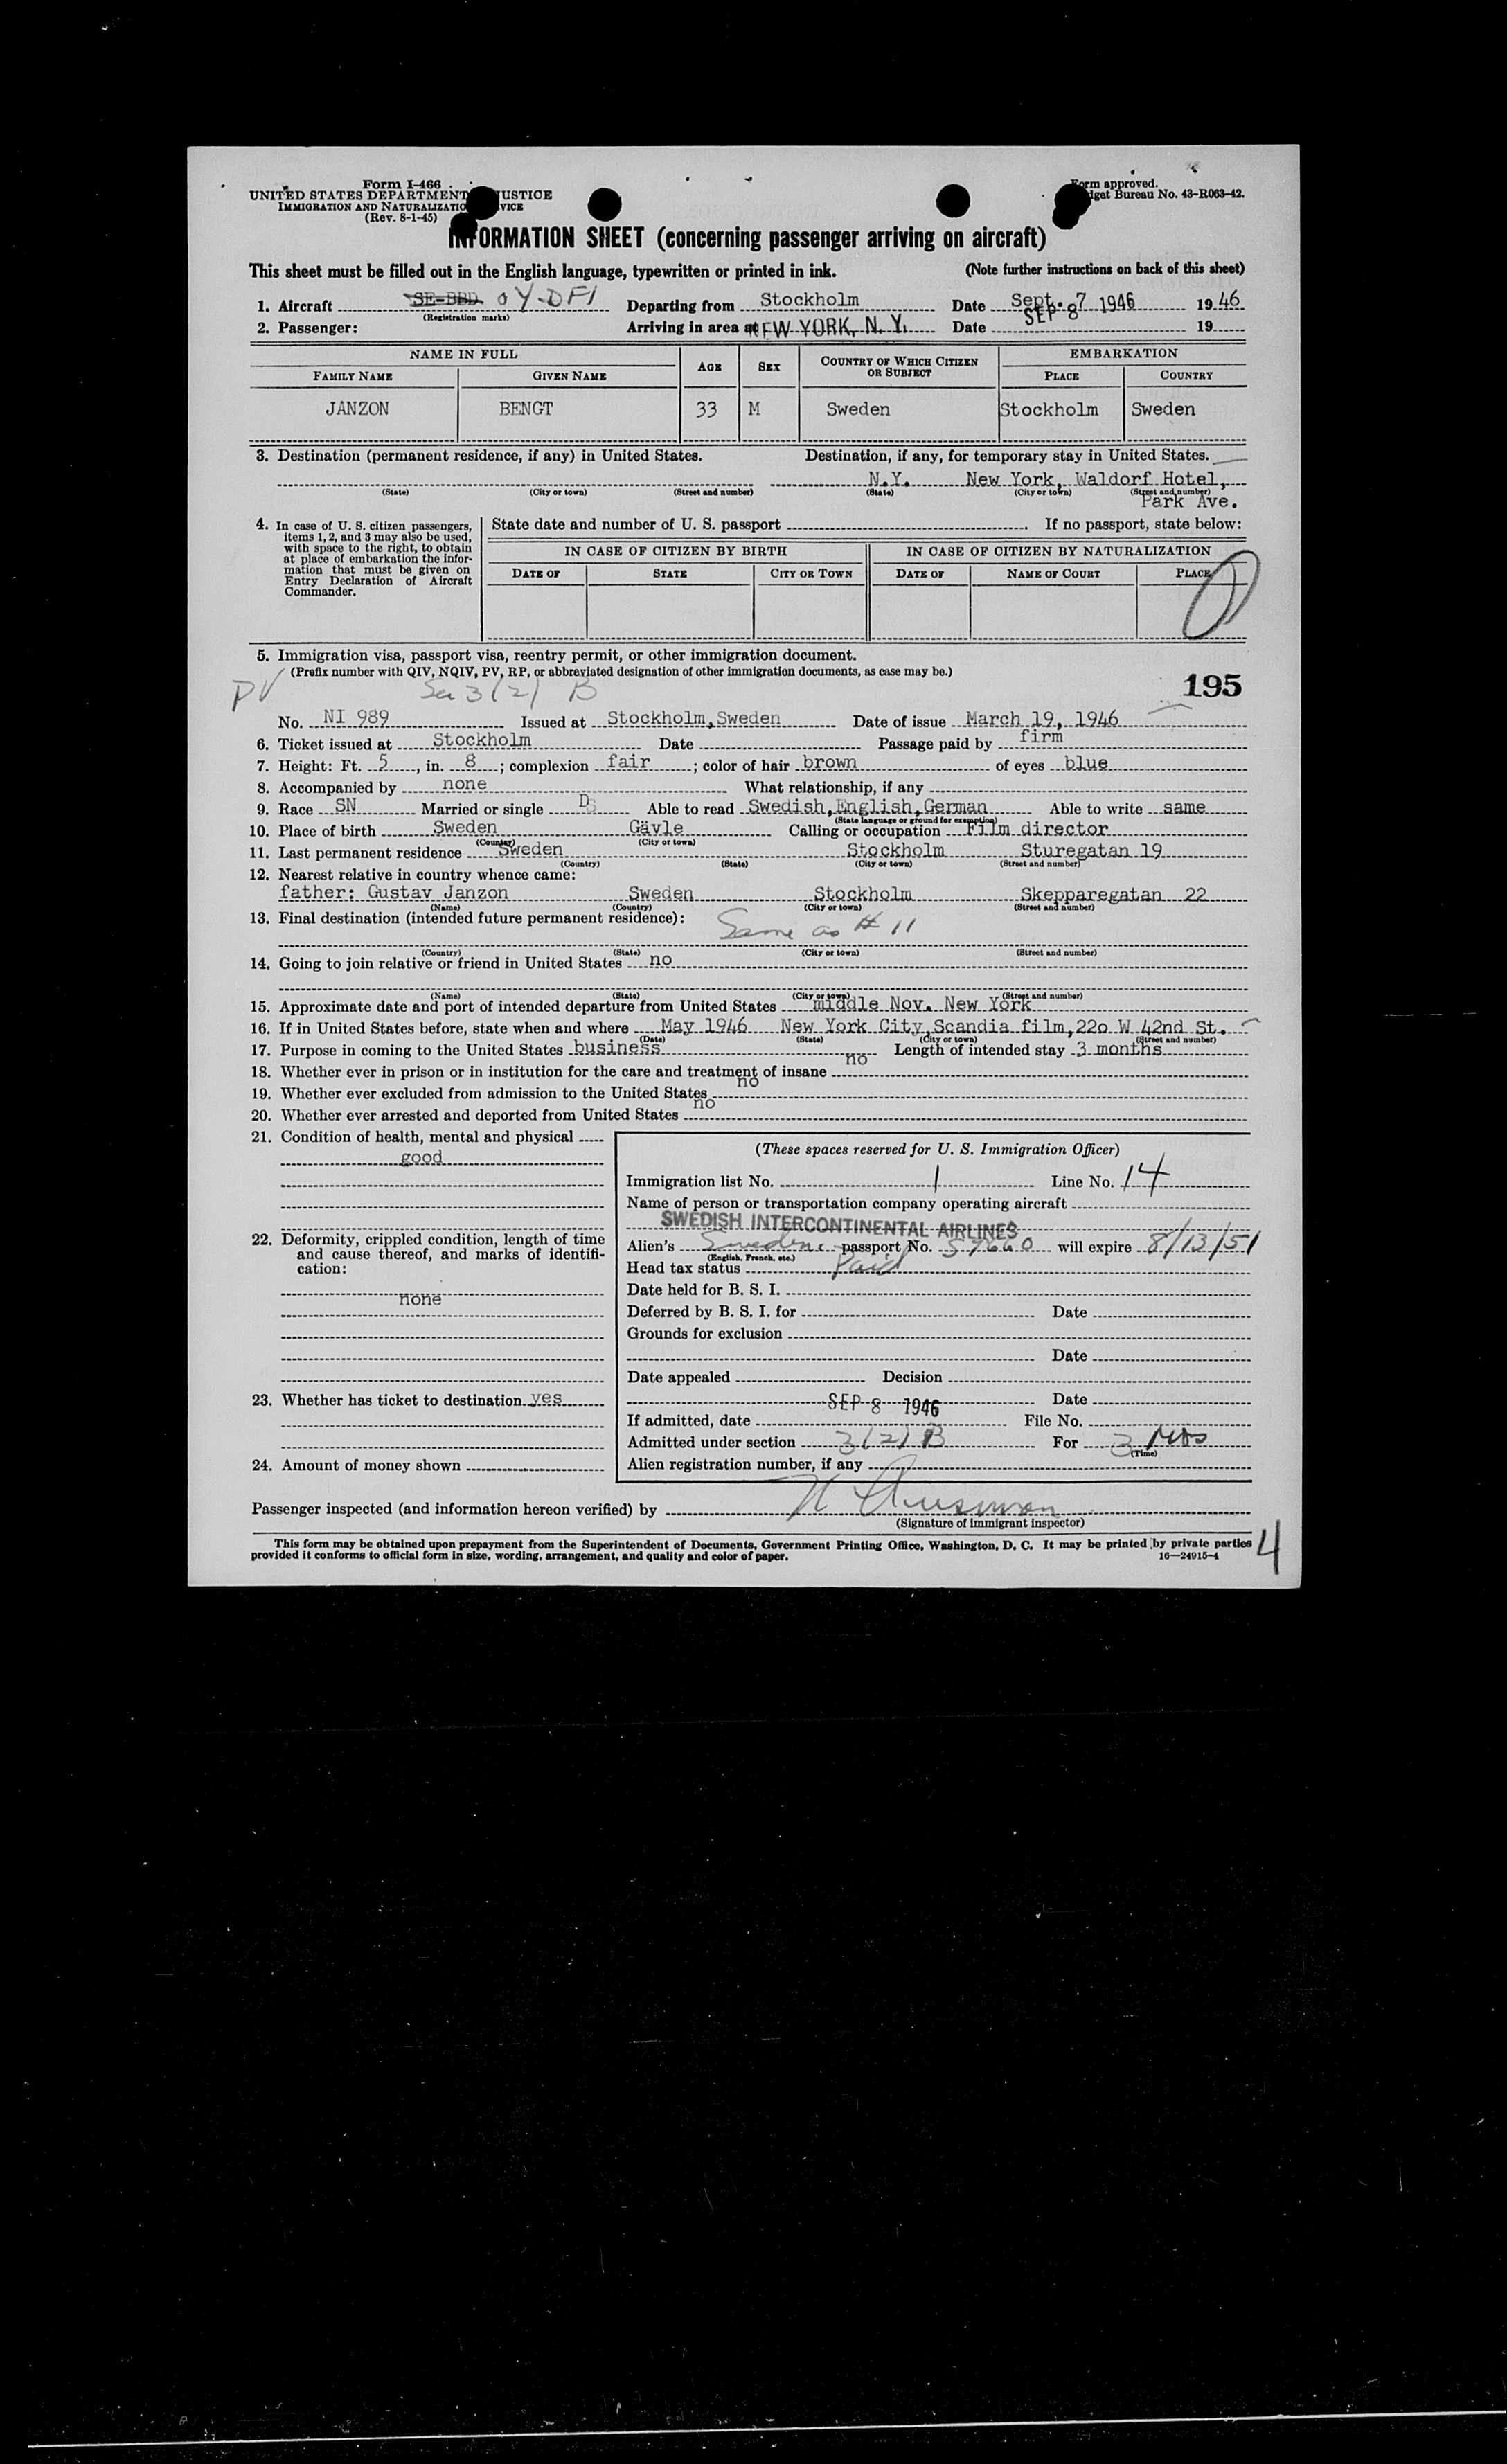 Form I-466
UNITED STATES DEPARTMENT JUSTICE
IMMIGRATION AND NATURALIZATION SERVICE
(Rev. 8-1-45)
Form approved.
Budget Bureau No. 43-R063-42.
INFORMATION SHEET (concerning passenger arriving on aircraft)
This sheet must be filled out in the English language, typewritten or printed in ink. (Note further instructions on back of this sheet)
1. Aircraft SE-BBD OY-DFI Departing from Stockholm Date Sept. 7 1946 1946
(Registration marks)
2. Passenger: Arriving in area at NEW YORK, N. Y. Date SEP 8 19
NAME IN FULL AGE SEX COUNTRY OF WHICH CITIZEN OR SUBJECT EMBARKATION
FAMILY NAME GIVEN NAME PLACE COUNTRY
JANZON BENGT 33 M Sweden Stockholm Sweden
3. Destination (permanent residence, if any) in United States. Destination, if any, for temporary stay in United States.
N.Y. New York, Waldorf Hotel,
(State) (City or town) (Street and number) (State) (City or town) (Street and number)
Park Ave.
4. In case of U. S. citizen passengers, items 1, 2, and 3 may also be used, with space to the right, to obtain at place of embarkation the information that must be given on Entry Declaration of Aircraft Commander.
State date and number of U. S. passport If no passport, state below:
IN CASE OF CITIZEN BY BIRTH IN CASE OF CITIZEN BY NATURALIZATION
DATE OF STATE CITY OR TOWN DATE OF NAME OF COURT PLACE
5. Immigration visa, passport visa, reentry permit, or other immigration document.
(Prefix number with QIV, NQIV, PV, RP, or abbreviated designation of other immigration documents, as case may be.)
PV 3(2) B 195
No. NI 989 Issued at Stockholm, Sweden Date of issue March 19, 1946
6. Ticket issued at Stockholm Date Passage paid by firm
7. Height: Ft. 5, in. 8; complexion fair; color of hair brown of eyes blue
8. Accompanied by none What relationship, if any
9. Race SN Married or single D Able to read Swedish, English, German Able to write same
(State language or ground for exemption)
10. Place of birth Sweden Gävle Calling or occupation Film director
(Country) (City or town)
11. Last permanent residence Sweden Stockholm Sturegatan 19
(Country) (State) (City or town) (Street and number)
12. Nearest relative in country whence came:
father: Gustav Janzon Sweden Stockholm Skepparegatan 22
(Name) (Country) (City or town) (Street and number)
13. Final destination (intended future permanent residence): Same as # 11
(Country) (State) (City or town) (Street and number)
14. Going to join relative or friend in United States no
(Name) (State) (City or town) (Street and number)
15. Approximate date and port of intended departure from United States middle Nov. New York
16. If in United States before, state when and where May 1946 New York City, Scandia film, 22o W 42nd St.
(Date) (State) (City or town) (Street and number)
17. Purpose in coming to the United States business Length of intended stay 3 months
18. Whether ever in prison or in institution for the care and treatment of insane no
19. Whether ever excluded from admission to the United States no
20. Whether ever arrested and deported from United States no
21. Condition of health, mental and physical
good
22. Deformity, crippled condition, length of time and cause thereof, and marks of identification:
none
23. Whether has ticket to destination yes
24. Amount of money shown
(These spaces reserved for U. S. Immigration Officer)
Immigration list No. 1 Line No. 14
Name of person or transportation company operating aircraft
SWEDISH INTERCONTINENTAL AIRLINES
Alien's Sweden passport No. 57660 will expire 8/13/51
(English, French, etc.)
Head tax status Paid
Date held for B. S. I.
Deferred by B. S. I. for Date
Grounds for exclusion
Date
Date appealed Decision
SEP 8 1946 Date
If admitted, date File No.
Admitted under section 3(2) B For 3 Mos
(Time)
Alien registration number, if any
Passenger inspected (and information hereon verified) by
(Signature of immigrant inspector)
This form may be obtained upon prepayment from the Superintendent of Documents, Government Printing Office, Washington, D. C. It may be printed by private parties
provided it conforms to official form in size, wording, arrangement, and quality and color of paper. 16—24915-4
4